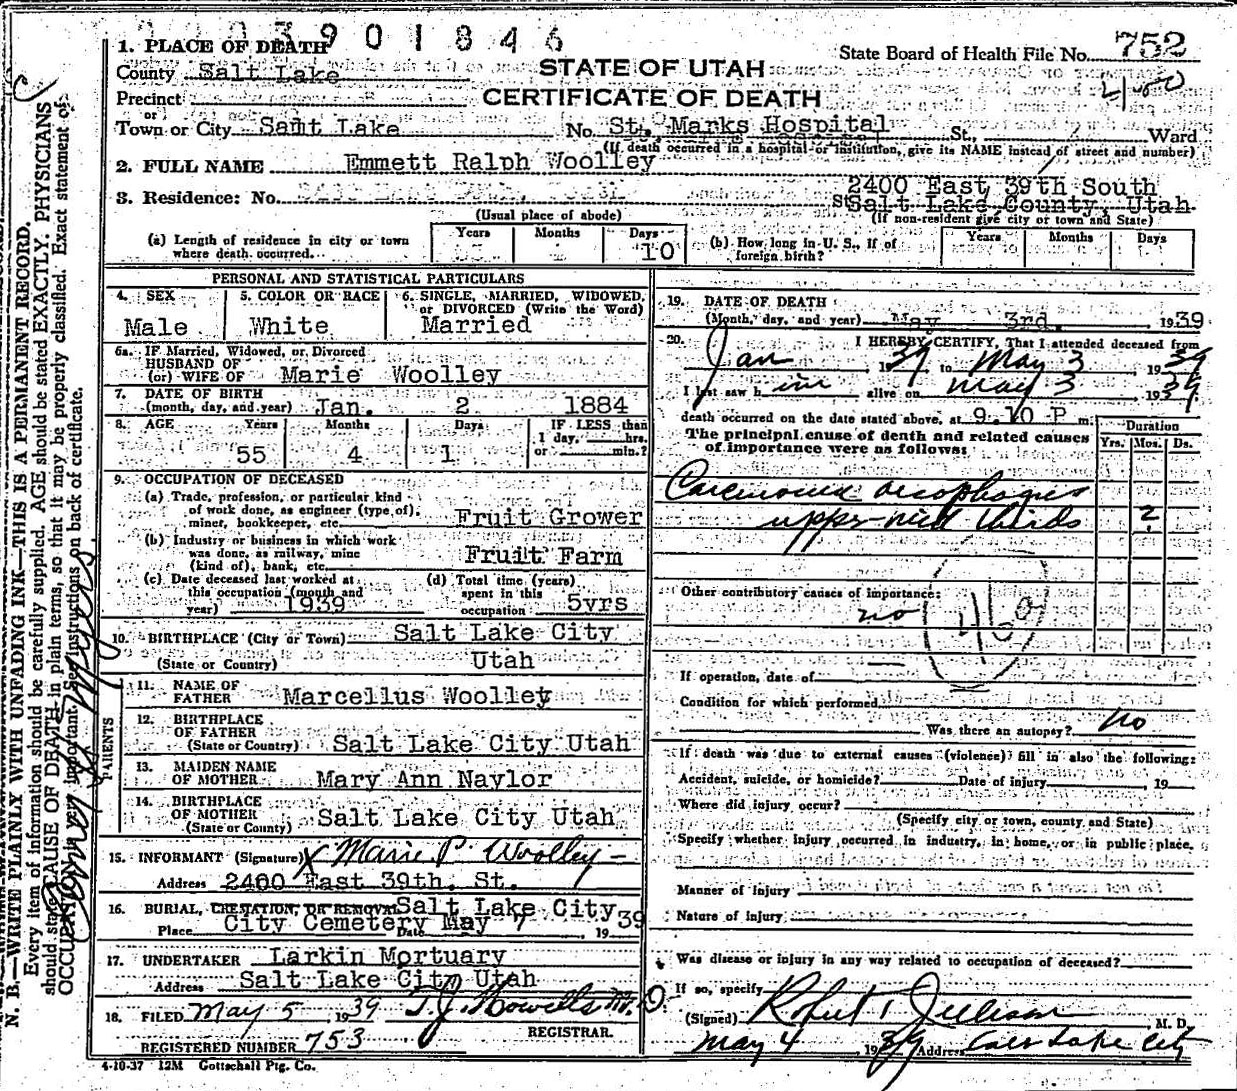 3901846
1. PLACE OF DEATH
State Board of Health File No. 752
County Salt Lake
STATE OF UTAH
Precinct
CERTIFICATE OF DEATH
or
Town or City Samt Lake No. St. Marks Hospital St., Ward
(If death occurred in a hospital or institution, give its NAME instead of street and number)
2. FULL NAME Emmett Ralph Woolley
2400 East 39th South
3. Residence: No. St. Salt Lake County, Utah
(Usual place of abode)
(If non-resident give city or town and State)
(a) Length of residence in city or town where death occurred. Years Months Days 10
(b) How long in U. S., if of foreign birth? Years Months Days
PERSONAL AND STATISTICAL PARTICULARS
4. SEX
Male
5. COLOR OR RACE
White
6. SINGLE, MARRIED, WIDOWED, or DIVORCED (Write the Word)
Married
6a. IF Married, Widowed, or Divorced
HUSBAND OF
(or) WIFE OF Marie Woolley
7. DATE OF BIRTH
(month, day, and year) Jan. 2 1884
8. AGE Years Months Days IF LESS than
1 day, hrs.
55 4 1 or min.?
9. OCCUPATION OF DECEASED
(a) Trade, profession, or particular kind
of work done, as engineer (type of),
miner, bookkeeper, etc. Fruit Grower
(b) Industry or business in which work
was done, as railway, mine
(kind of), bank, etc. Fruit Farm
(c) Date deceased last worked at
this occupation (month and
year) 1939
(d) Total time (years)
spent in this
occupation 5yrs
10. BIRTHPLACE (City or Town) Salt Lake City
(State or Country) Utah
PARENTS
11. NAME OF
FATHER Marcellus Woolley
12. BIRTHPLACE
OF FATHER
(State or Country) Salt Lake City Utah
13. MAIDEN NAME
OF MOTHER Mary Ann Naylor
14. BIRTHPLACE
OF MOTHER
(State or County) Salt Lake City Utah
15. INFORMANT (Signature) X Marie P. Woolley
Address 2400 East 39th. St.
16. BURIAL, CREMATION, OR REMOVAL Salt Lake City
Place City Cemetery Date May 7, 1939
17. UNDERTAKER Larkin Mortuary
Address Salt Lake City Utah
18. FILED May 5 1939 T.J. Howells M.D.
REGISTRAR.
REGISTERED NUMBER 753
4-10-37 12M Gottschall Ptg. Co.
19. DATE OF DEATH
(Month, day, and year) May 3rd. 1939
20. I HEREBY CERTIFY, That I attended deceased from
Jan 1939 to May 3 1939
I last saw him alive on May 3 1939
death occurred on the date stated above, at 9.10 P m.
The principal cause of death and related causes
of importance were as follows:
Duration
Yrs. Mos. Ds.
Carcinoma oesophagus
upper-mid thirds 2
Other contributory causes of importance:
no
If operation, date of
Condition for which performed
Was there an autopsy? no
If death was due to external causes (violence) fill in also the following:
Accident, suicide, or homicide? Date of injury 19
Where did injury occur?
(Specify city or town, county and State)
Specify whether injury occurred in industry, in home, or in public place.
Manner of Injury
Nature of injury
Was disease or injury in any way related to occupation of deceased?
If so, specify
(Signed) Robert T Jellison, M. D.
May 4 1939 Address Salt Lake City
N. B.—WRITE PLAINLY WITH UNFADING INK—THIS IS A PERMANENT RECORD.
Every item of information should be carefully supplied. AGE should be stated EXACTLY. PHYSICIANS
should state CAUSE OF DEATH in plain terms, so that it may be properly classified. Exact statement of
OCCUPATION is very important. See instructions on back of certificate.